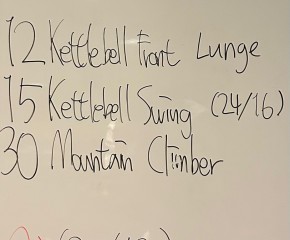 12 Kettlebell Front Lunge
15 Kettlebell Swing (24/16)
30 Mountain Climber